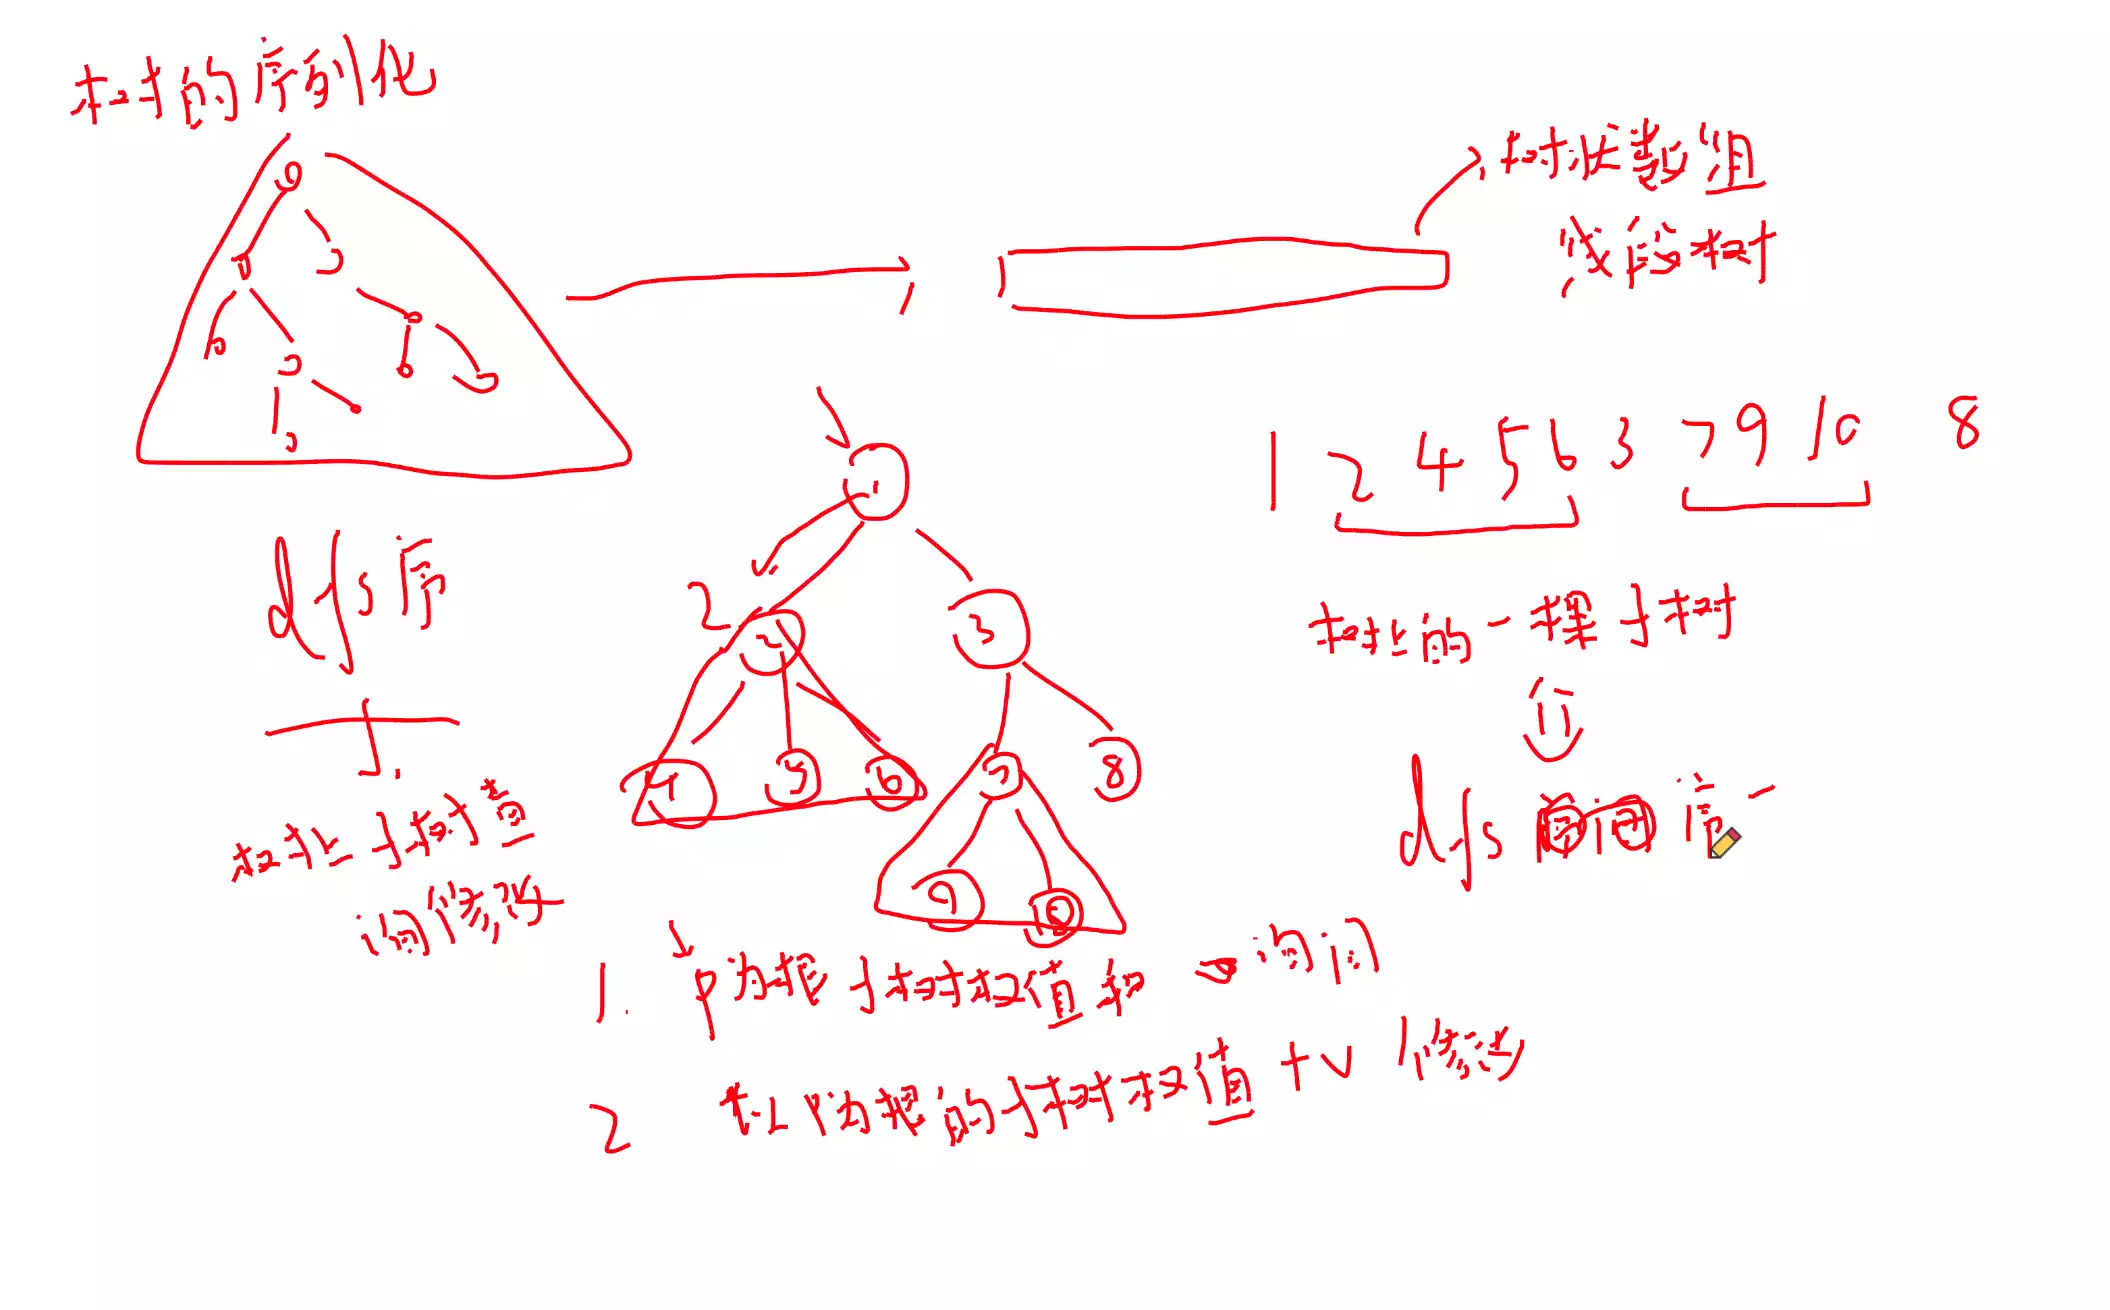 树的序列化
树状数组
线段树
1 2 4 5 6 3 7 9 10 8
dfs序
树上子树查
询修改
1
2
2
3
4
5
6
7
8
9
10
树上的一棵子树
dfs 序一
1. p为根子树权值和 询问
2 以p为根的子树权值+v 修改